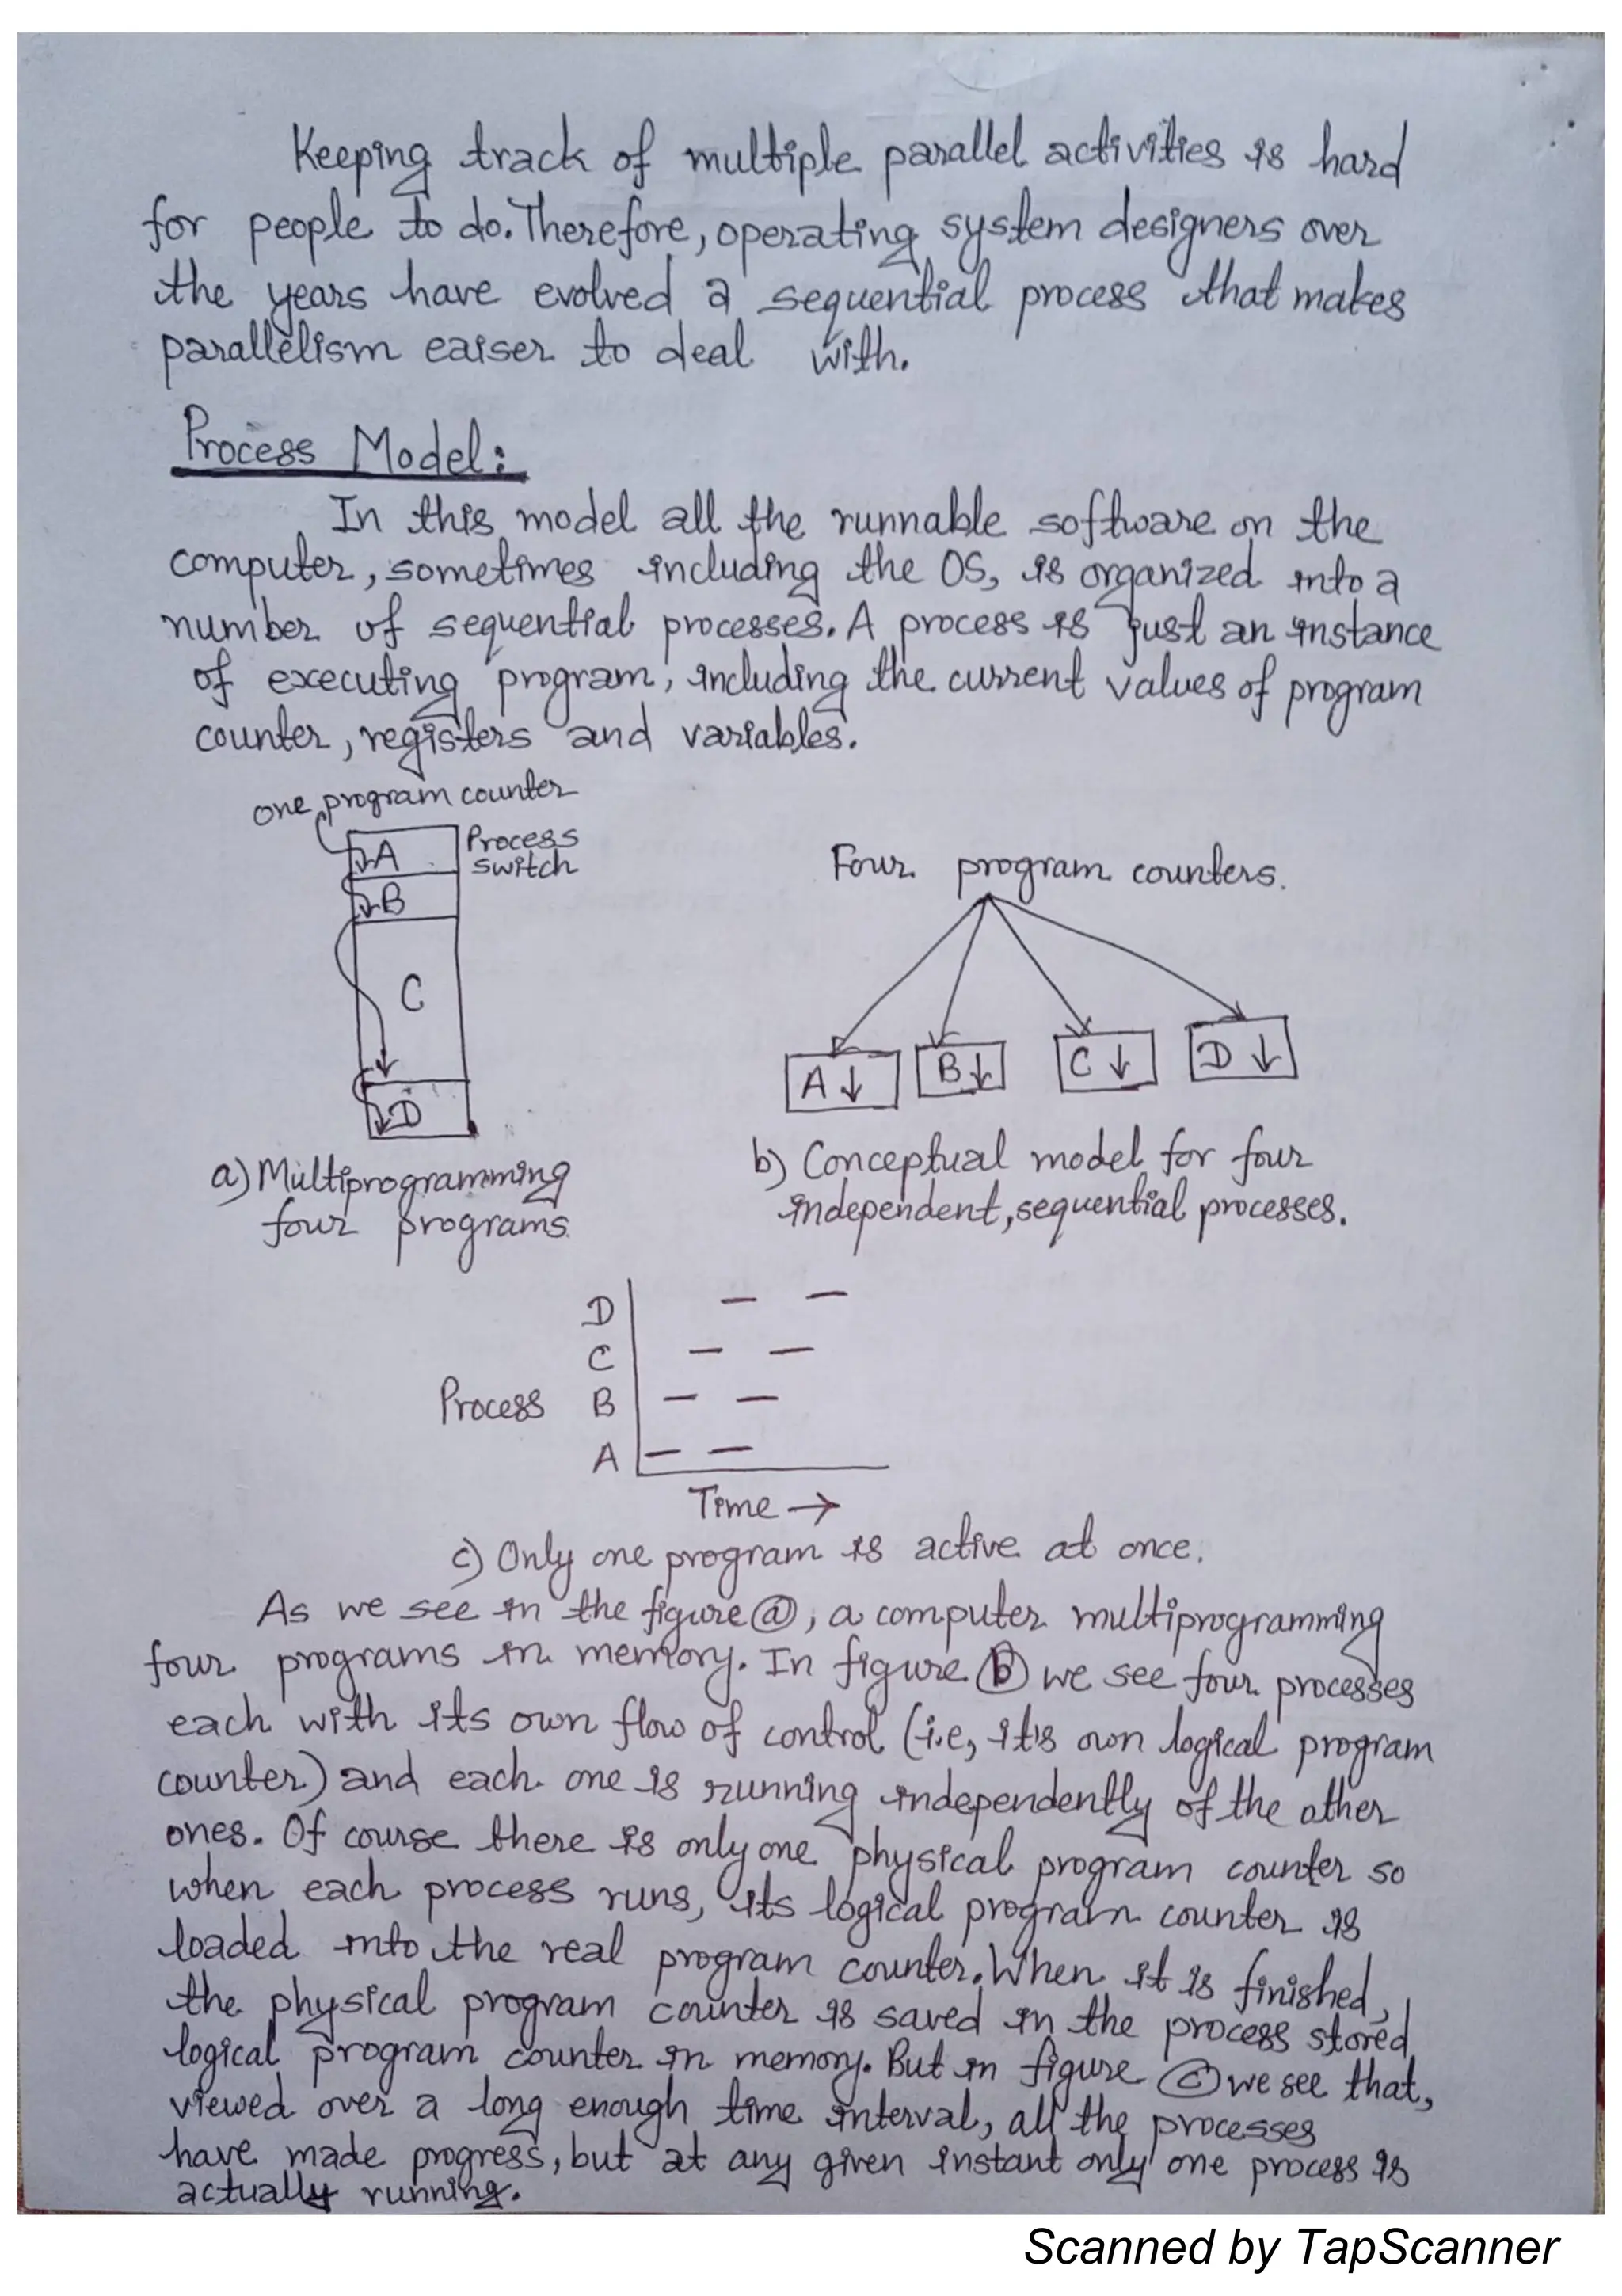 Keeping track of multiple parallel activities is hard
for people to do. Therefore, operating system designers over
the years have evolved a sequential process that makes
parallelism eaiser to deal with.
Process Model:
In this model all the runnable software on the
computer, sometimes including the OS, is organized into a
number of sequential processes. A process is just an instance
of executing program, including the current values of program
counter, registers and variables.
one program counter
Process
switch
A
B
C
D
a) Multiprogramming
four programs.
Four program counters.
A ↓
B ↓
C ↓
D ↓
b) Conceptual model for four
independent, sequential processes.
D
C
Process B
A
Time →
c) Only one program is active at once.
As we see in the figure ⓐ, a computer multiprogramming
four programs in memory. In figure ⓑ we see four processes
each with its own flow of control (i.e, it's own logical program
counter) and each one is running independently of the other
ones. Of course there is only one physical program counter so
when each process runs, its logical program counter is
loaded into the real program counter. When it is finished,
the physical program counter is saved in the process stored
logical program counter in memory. But in figure ⓒ we see that,
viewed over a long enough time interval, all the processes
have made progress, but at any given instant only one process is
actually running.
Scanned by TapScanner